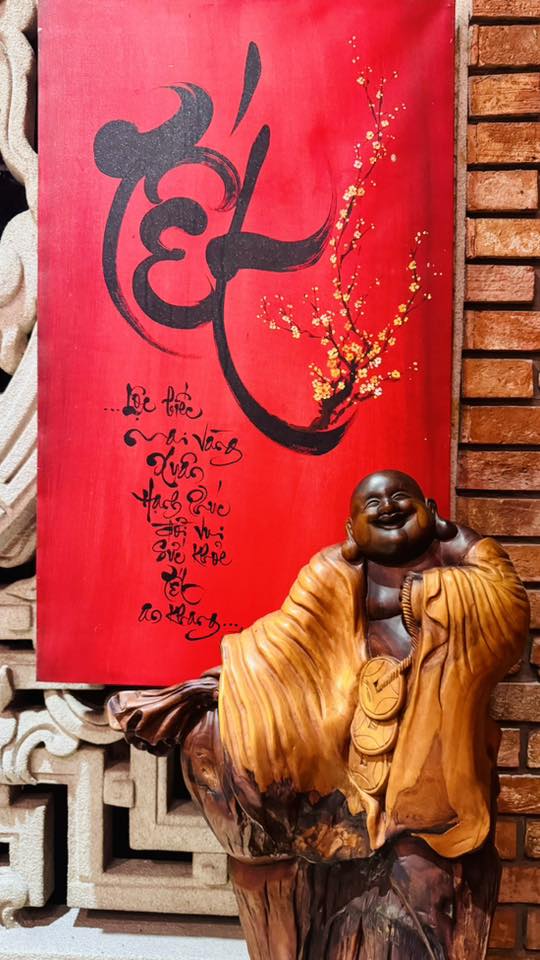 Tết
...Lộc biếc
Mai vàng
Xuân
Hạnh Phúc
Đời vui
Sức khỏe
Tết
an khang...